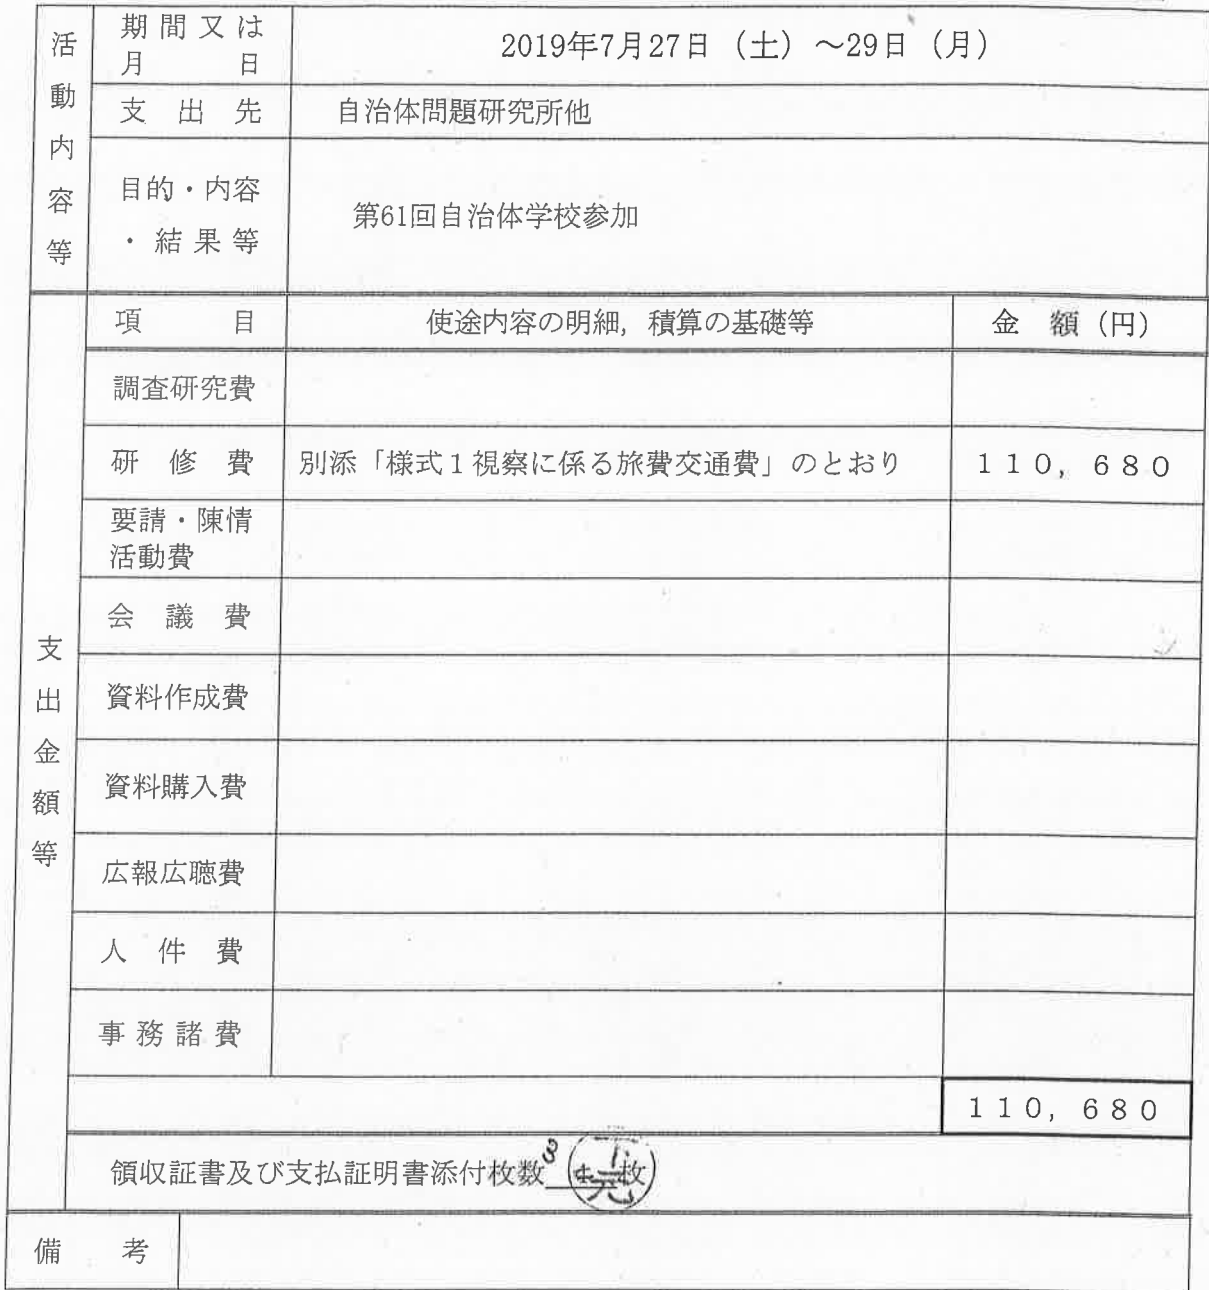 活動内容等
期間又は
月　　日
2019年7月27日（土）～29日（月）
支 出 先
自治体問題研究所他
目的・内容
・結果等
第61回自治体学校参加
支出金額等
項　　目
使途内容の明細，積算の基礎等
金　額（円）
調査研究費
研 修 費
別添「様式１視察に係る旅費交通費」のとおり
１１０，６８０
要請・陳情
活動費
会 議 費
資料作成費
資料購入費
広報広聴費
人 件 費
事務諸費
１１０，６８０
領収証書及び支払証明書添付枚数 3 枚
備　考